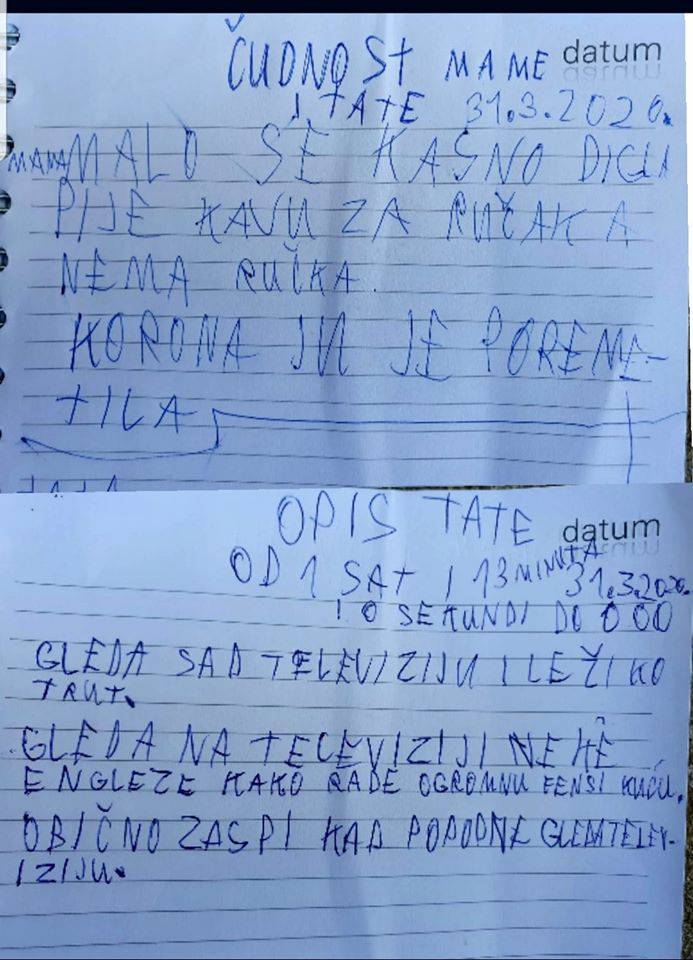 ČUDNOST MAME datum
I TATE 31.3.2020.
MAMA MALO SE KASNO DIGLA
PIJE KAVU ZA RUČAK A
NEMA RUČKA.
KORONA JU JE POREME-
TILA
TATA
OPIS TATE datum
OD 1 SAT I 13 MINUTA 31.3.2020.
I 0 SEKUNDI DO 000
GLEDA SAD TELEVIZIJU I LEŽI KO
TRUT.
GLEDA NA TELEVIZIJI NEKE
ENGLEZE KAKO RADE OGROMNU FENSI KUĆU.
OBIČNO ZASPI KAD POPODNE GLEDA TELEV-
IZIJU.